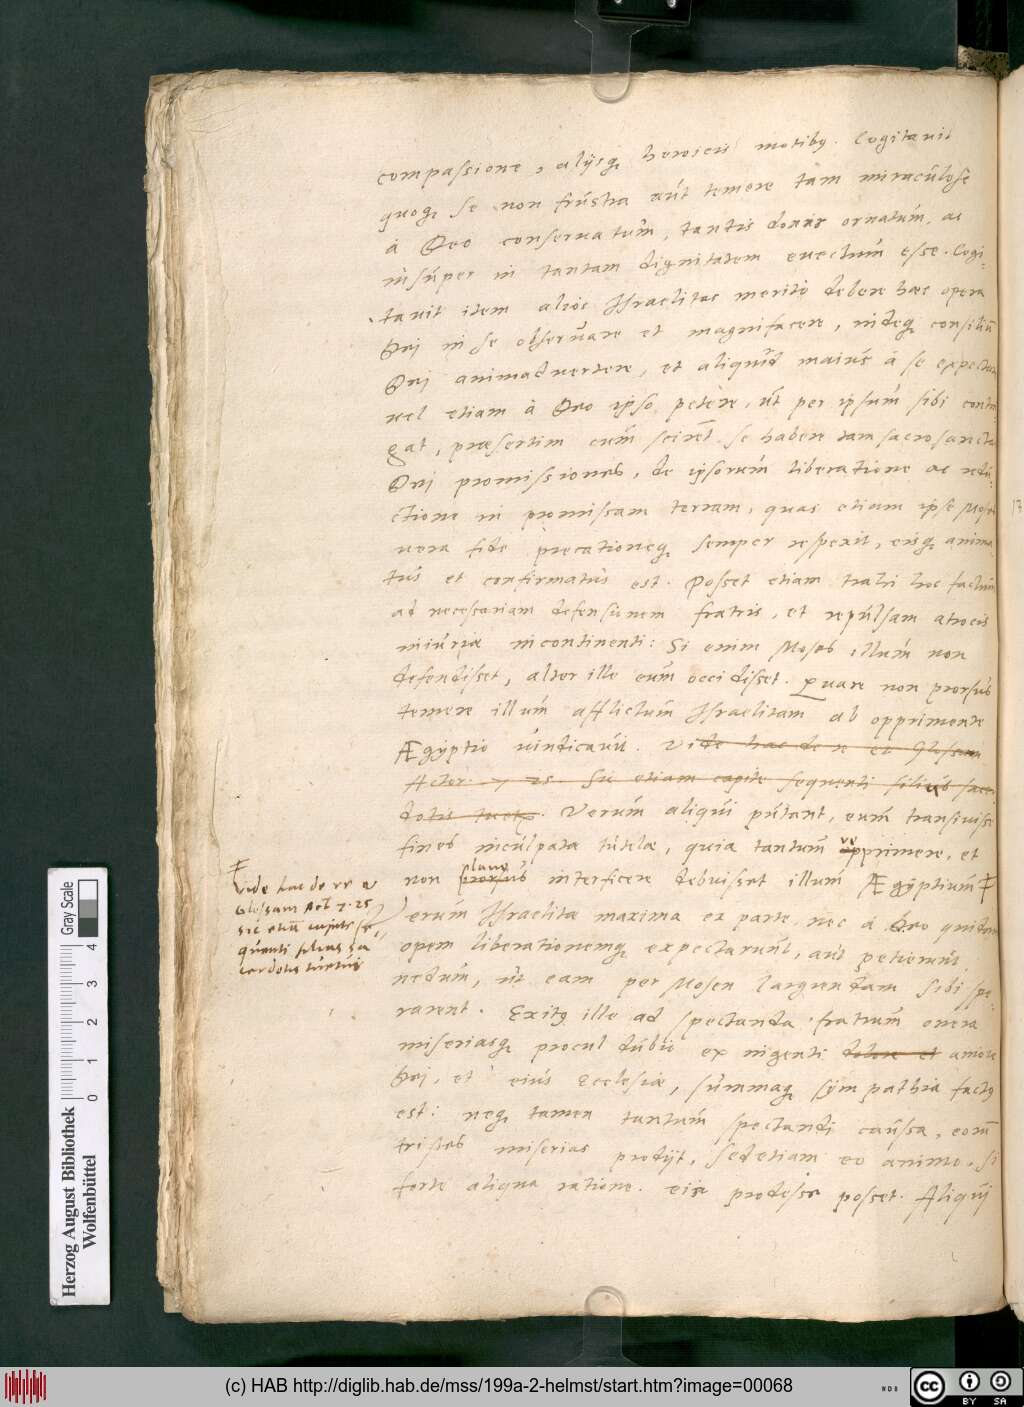 compassione, alijsq, heroicis motibq. Cogitavit
quoq, se non frustra aut temere tam miraculose
à Deo conservatum, tantis donis ornatum, ac
insuper in tantam dignitatem evectum esse. Cogi-
tavit item alios Israelitas merito debere haec opera
Dei in se observare et magnifacere, indeq, consiliū
Dei animadvertere, et aliquid maius à se expectare
vel etiam à Deo ipso petere, ut per ipsum sibi contin
gat, praesertim cum sciret se habere tam sacrosancta
Dei promissiones, de ipsorum liberatione ac redu-
ctione in promissam terram, quas etiam ipse Moses
vera fide precationeq, semper respexit, eisq, anima
tus et confirmatus est. Posset etiam trahi hoc factum
ad necessariam defensionem fratris, et repulsam atrocis
iniuriae incontinenti: Si enim Moses illum non
defendisset, alter ille eum occidisset. Quare non prorsus
temere illum afflictum Israelitam ab opprimente
Ægyptio vindicavit. Vide hac de re et Glossam
Actor. 7. 25. Sic etiam capite sequenti filias sacer
dotis tuetq. Verum aliqui putant, eum transivisse
fines inculpatae tutelae, quia tantum opprimere, et
re
non prorsus interficere debuisset illum Ægyptium
plane
vide hac de re et
Glossam Act. 7. 25
sic etiā capite se
quenti filias sa
cerdotis tuetur
Verum Israelitae maxima ex parte, nec à Deo quidem
opem liberationemq, expectarunt, aut petierunt
nedum, ut eam per Mosen largiendam sibi spe-
rarent. Exitq ille ad spectanda fratrum onera
miseriasq, procul dubio ex ingenti dolore et amore
Dei, et eius Ecclesiae, summaq, sympathia factq
est: neq, tamen tantum spectandi caussa, eorū
tristes miserias prodijt, sed etiam eo animo, si
forte aliqua ratione eis prodesse posset. Aliqui
Herzog August Bibliothek
Wolfenbüttel
0 1 2 3 4
Gray Scale
(c) HAB http://diglib.hab.de/mss/199a-2-helmst/start.htm?image=00068
cc BY SA